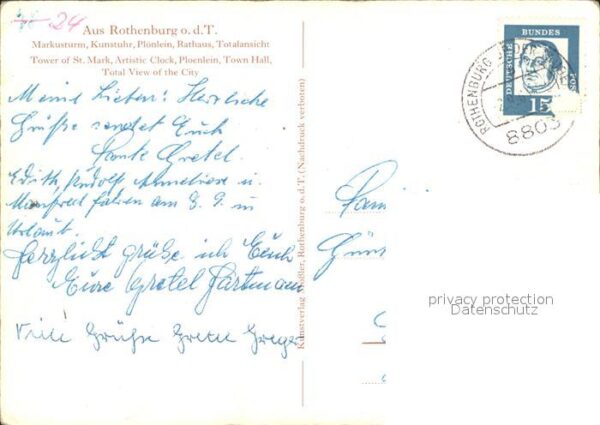 24
Aus Rothenburg o. d. T.
Markusturm, Kunstuhr, Plönlein, Rathaus, Totalansicht
Tower of St. Mark, Artistic Clock, Ploenlein, Town Hall,
Total View of the City
Meine Lieben! Herzliche
Grüße sendet Euch
Tante Gretel.
Edith, Rudolf Anneliese u.
Manfred fahren am 8. 9. in
Urlaub.
Herzlichst grüße ich Euch
Eure Gretel
Viele Grüße
Kunstverlag Rothenburg o. d. T. (Nachdruck verboten)
Fam
Gün
DEUTSCHE
BUNDES
POS
15
ROTHENBURG OB DER
8803
privacy protection
Datenschutz